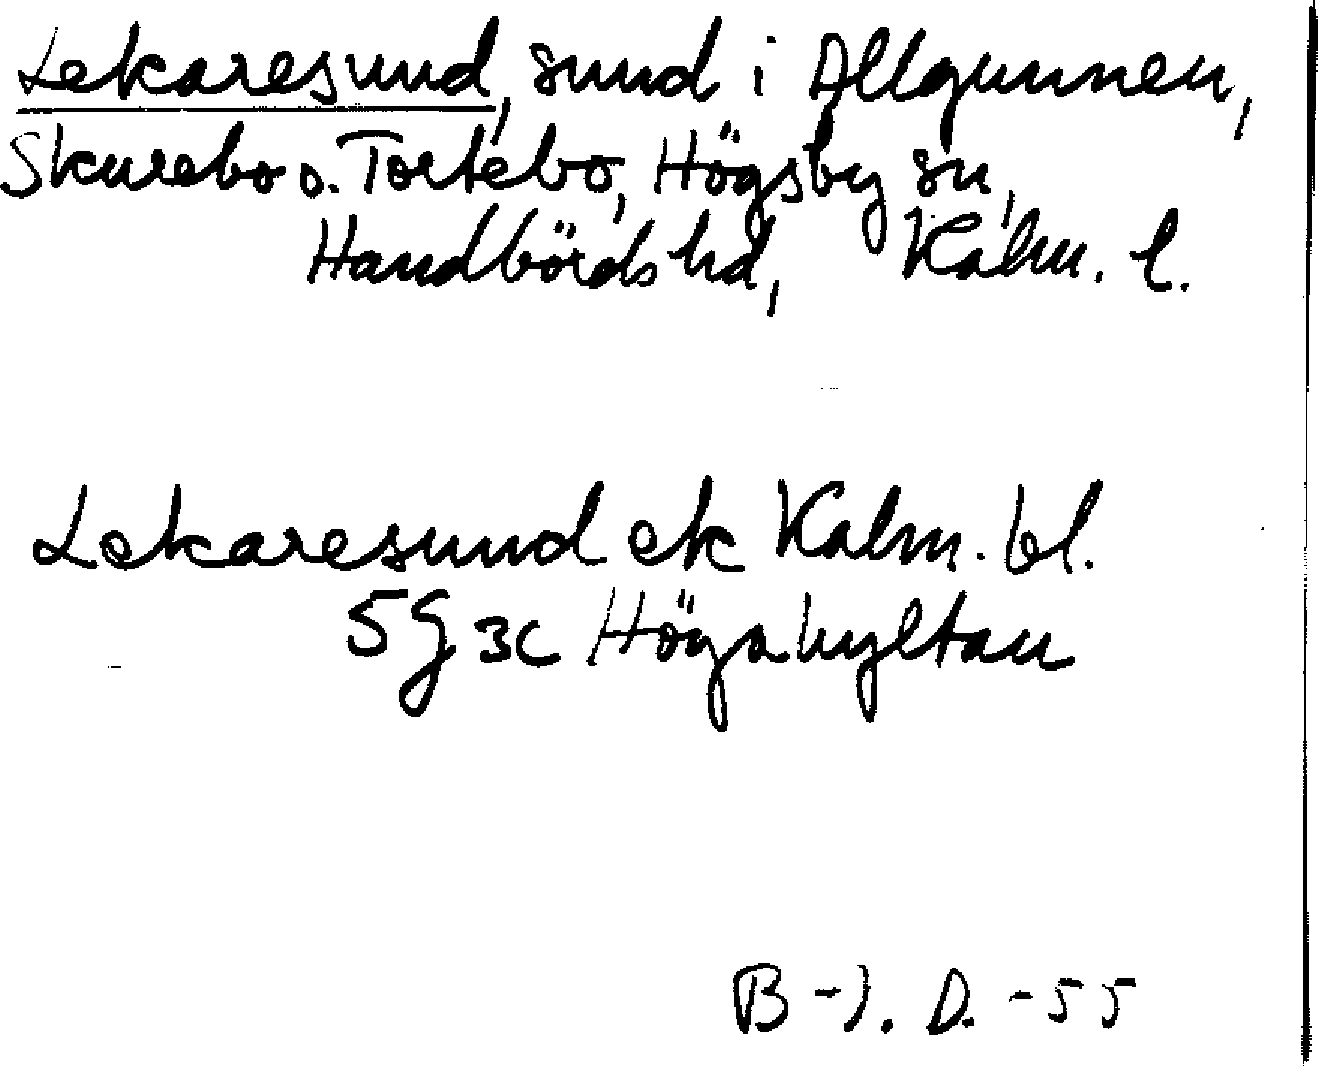 Lekaresund, sund i Allgunnen,
Skurebo o. Tortebo, Högsby sn,
Handbörds hd, Kalm. l.
Lekaresund ek Kalm. bl.
5g 3c Högahyltan
B-J. D. -55